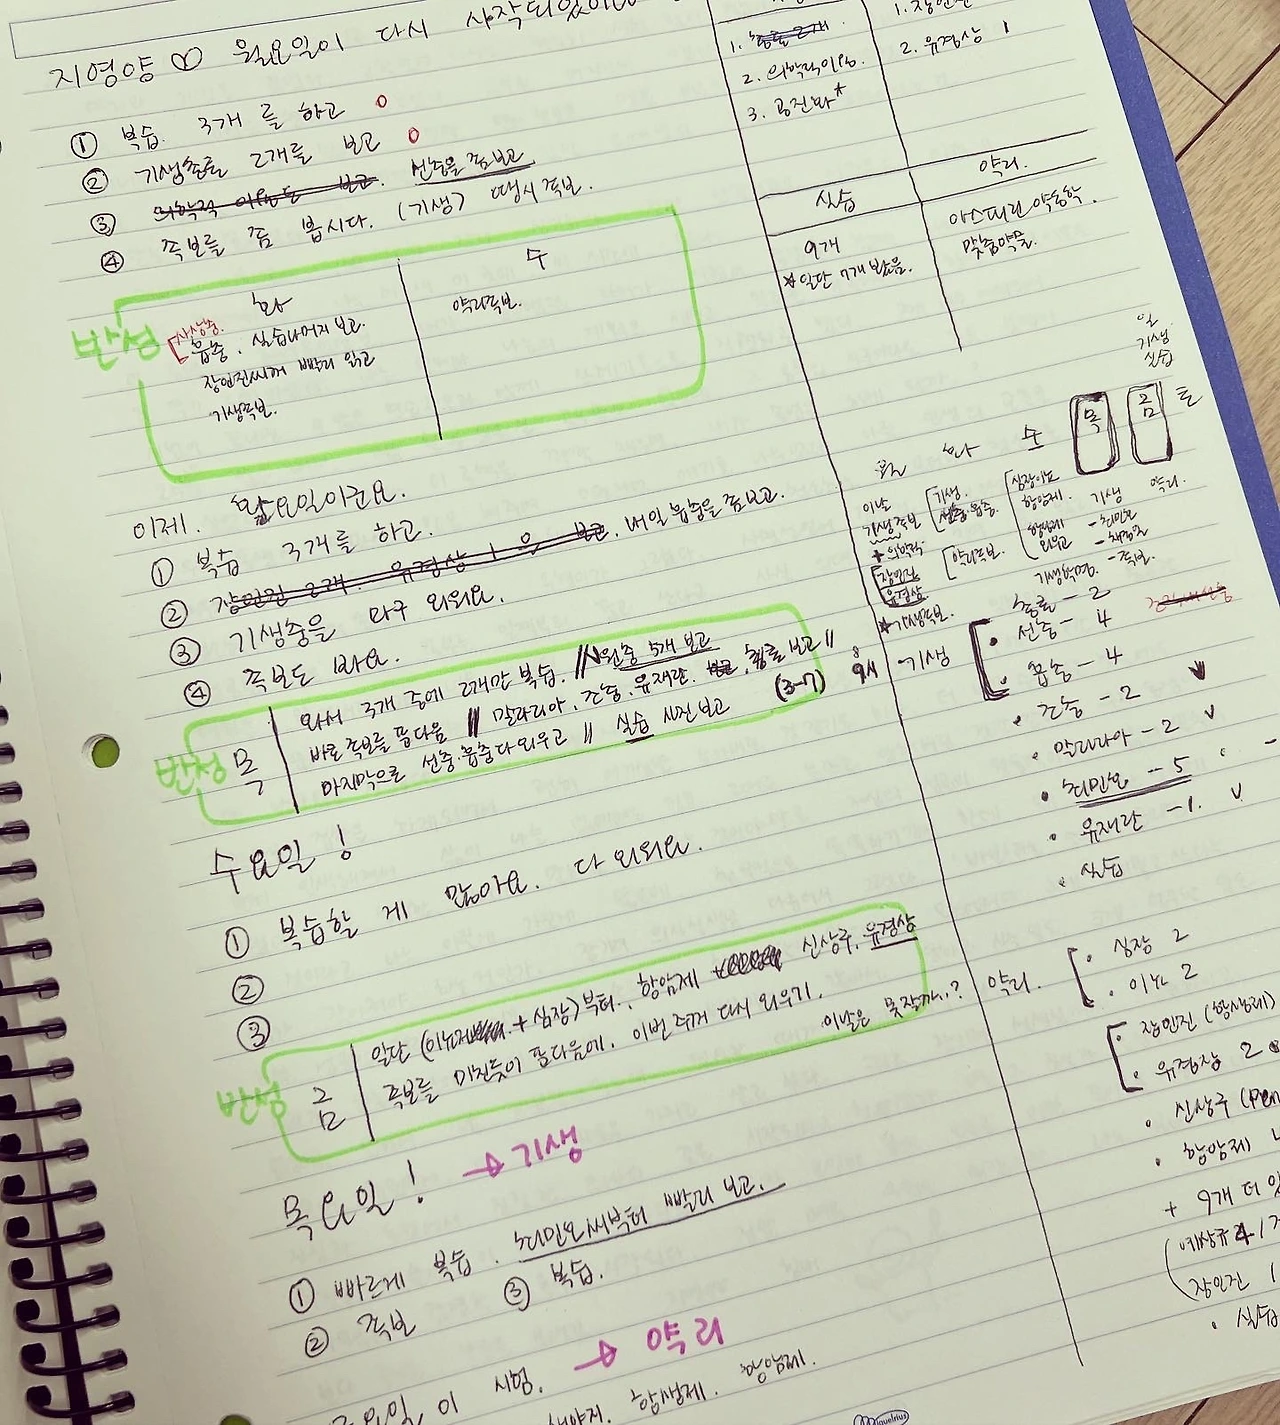 지영양 ♡ 월요일이 다시 시작되었
① 복습 3개 를 하고 o
② 기생충을 2개를 보고 o
③ 선충을 좀 보고
④ 족보를 좀 봅시다. (기생) 땡시 족보.
반성
화
수
사상충.
흡충. 실습나머지 보고.
장인진씨꺼 빨리 읽고
기생족보.
약리족보.
이제. 화요일이군요.
① 복습 3개를 하고.
② 내일 흡충을 좀 보고.
③ 기생충을 마구 외워요.
④ 족보도 봐요.
반성 목
와서 3개 중에 2개만 복습. // 원충 5개 보고
바로 족보를 푼다음 // 말라리아, 조충, 유재란. 보고 //
마지막으로 선충·흡충 다 외우고 // 실습 사진 보고 (3-7) 9시
수요일!
① 복습할 게 많아요. 다 외워요.
②
③
반성 금
일단 (이뇨제 + 심장)부터. 항암제 신상구. 유경상
족보를 미친듯이 푼다음에. 이번주꺼 다시 외우기.
이날은 못잘까나..?
목요일! → 기생
① 빠르게 복습. 최민호씨부터 빨리 보고.
② 족보 ③ 복습.
요일 이 시험. → 약리
항생제. 항암제.
1.
2. 의학적이용.
3. 공진화*
2. 유경상 1
실습
약리.
9개
*일단 7개 봤음.
아스피린 약동학.
맞춤약물.
일
기생
실습
월 화 수 목 금 토
이날
기생족보
+ 의학적
장인진
유경상
*기생족보.
기생.
선충·흡충.
약리족보.
심장이뇨
항암제.
항암제
외우고
기생
기생학명.
-족보.
약리.
기생
총론 - 2
선충 - 4
흡충 - 4
조충 - 2
말라리아 - 2 v
최민호 - 5
유재란 - 1. v
실습
약리.
심장 2
이뇨 2
장인진 (항생제)
유경상 2
신상구 (pen
항암제
+ 9개 더 있
장인진 1
실습
Miquelrius